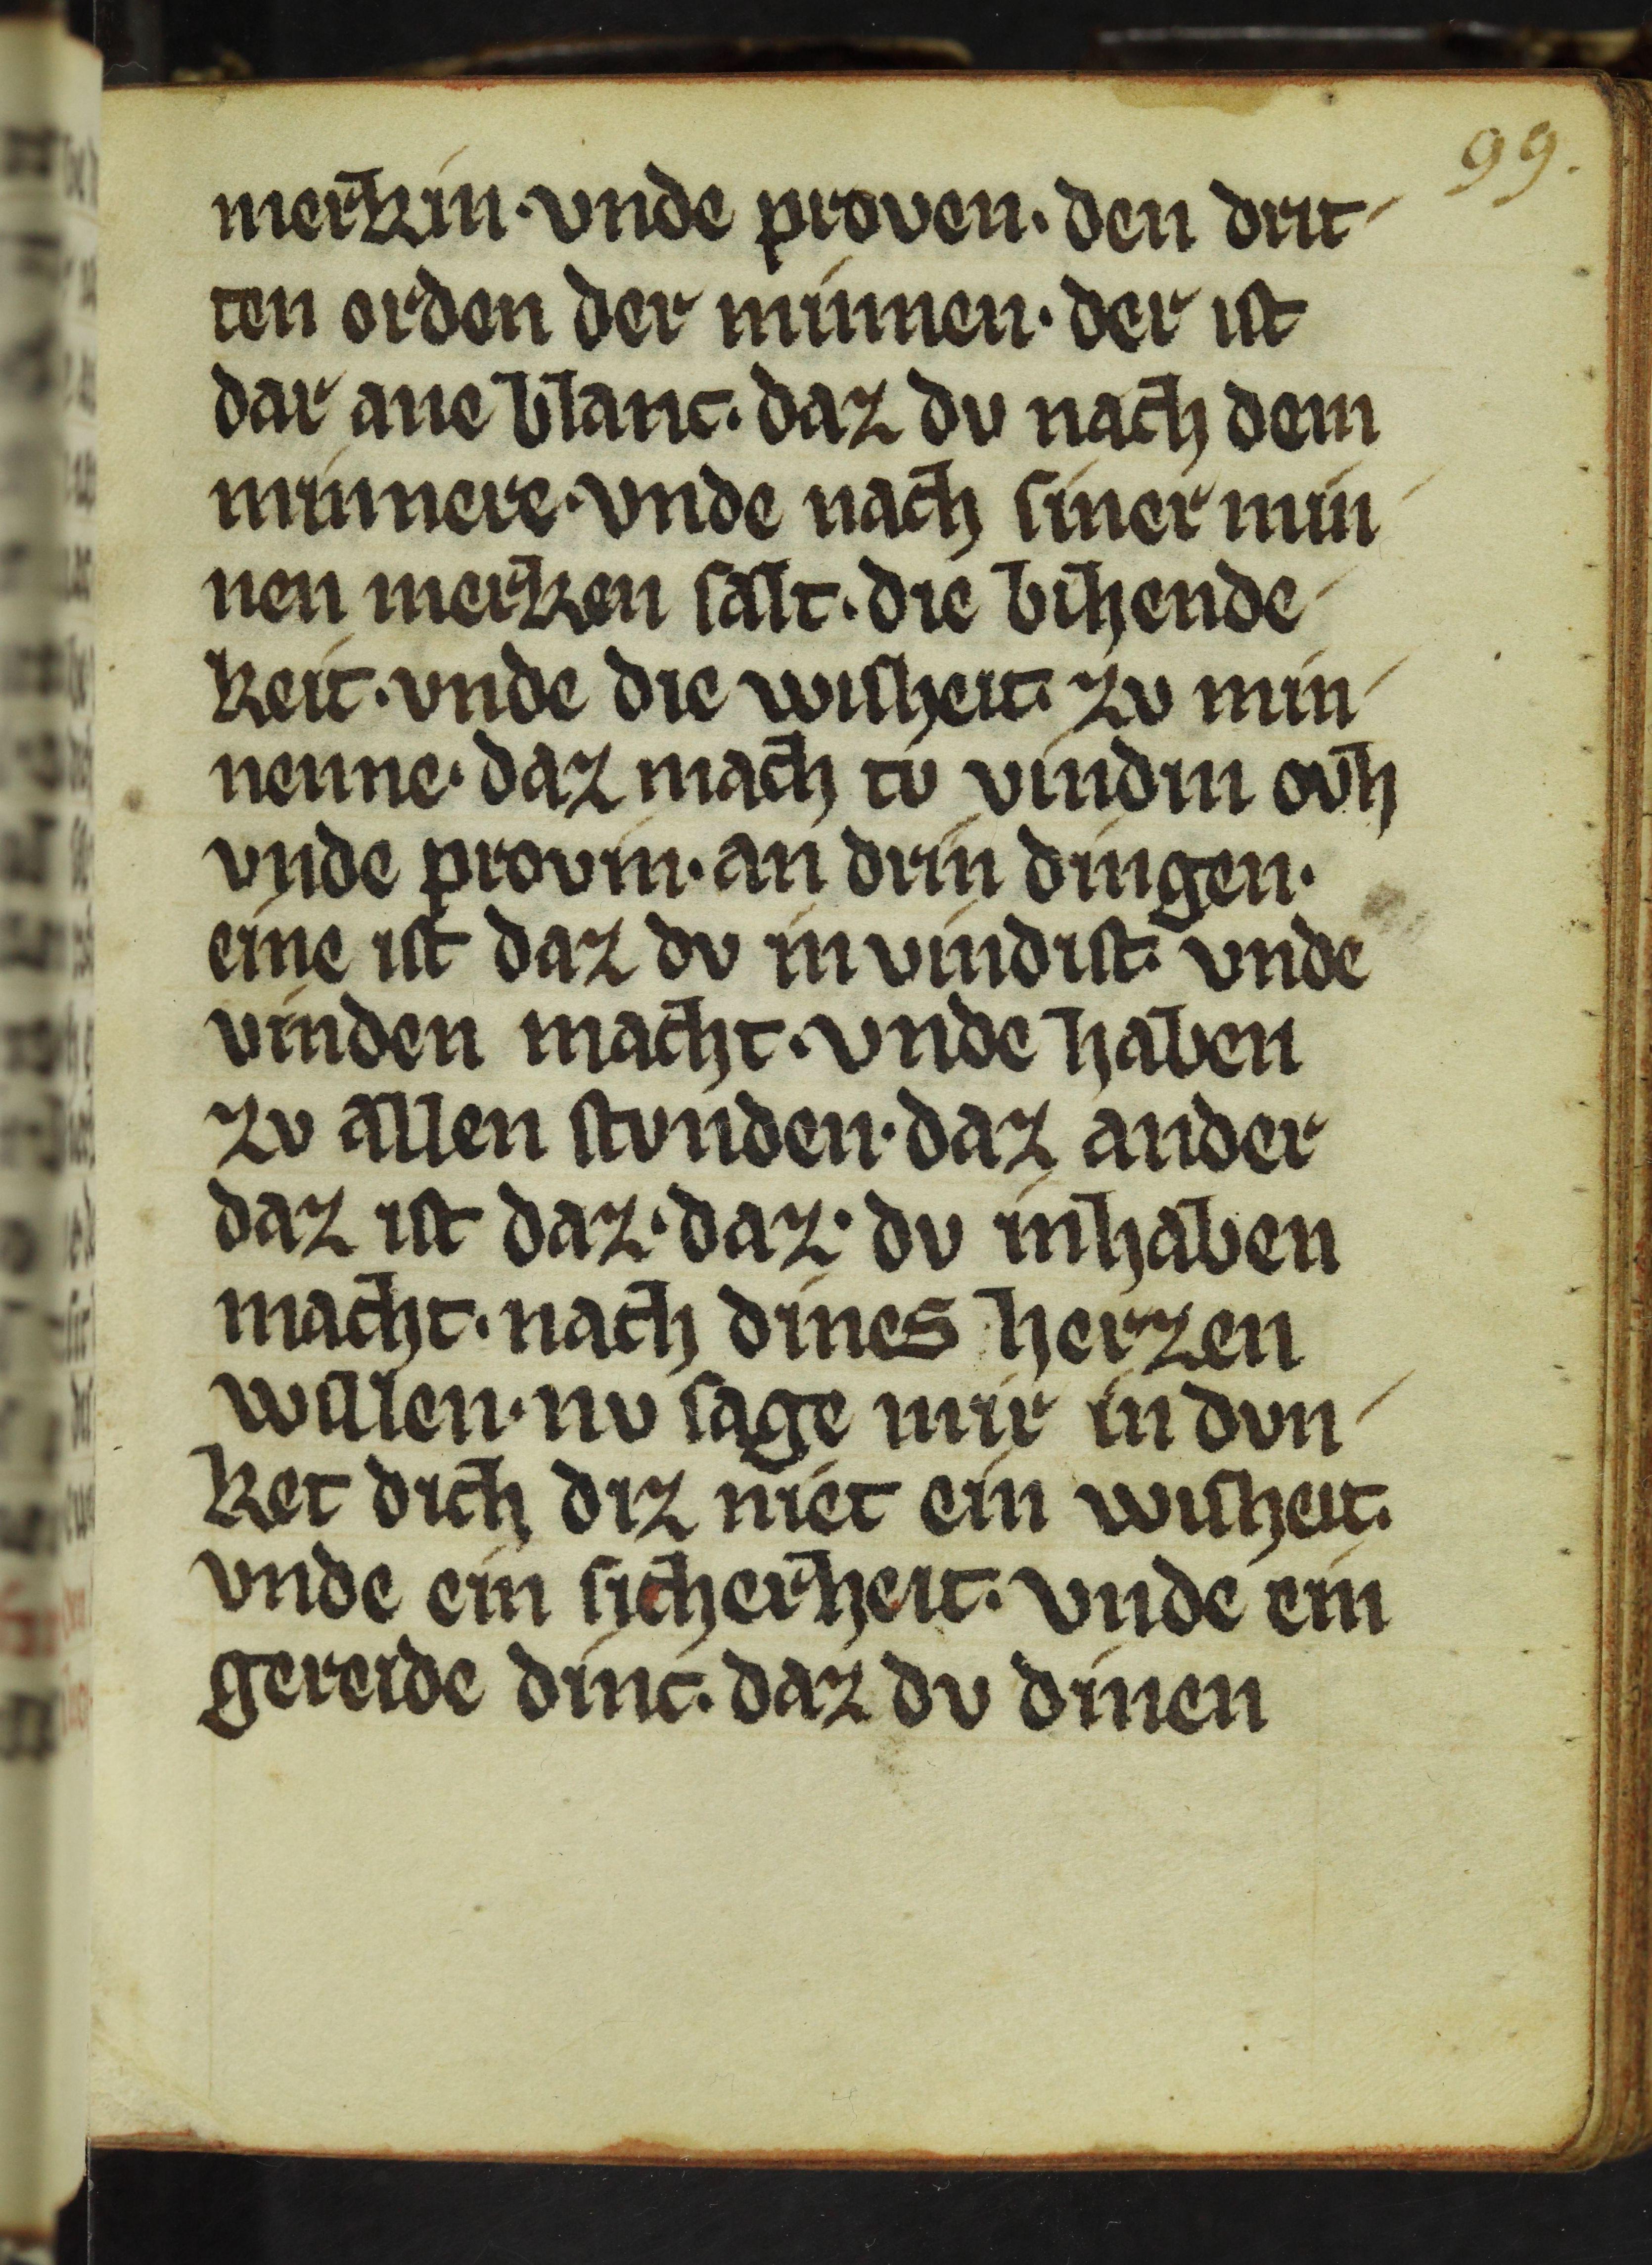 99.
merkin·vnde proven·den drit-
ten orden der minnen·der ist
dar ane blanc·daz dv nach dem
minnere·vnde nach siner min-
nen merken salt·die bihende-
keit·vnde die wisheit·zv min-
nenne·daz mach tv vindin ovh
vnde provin·an drin dingen·
eine ist daz dv in vindist·vnde
vinden macht·vnde haben
zv allen stvnden·daz ander
daz ist daz·daz·dv inhaben
macht·nach dines herzen
willen·nv sage mir in dvn-
ket dich diz niet ein wisheit·
vnde ein sicherheit·vnde ein
gereide dinc·daz dv dinen